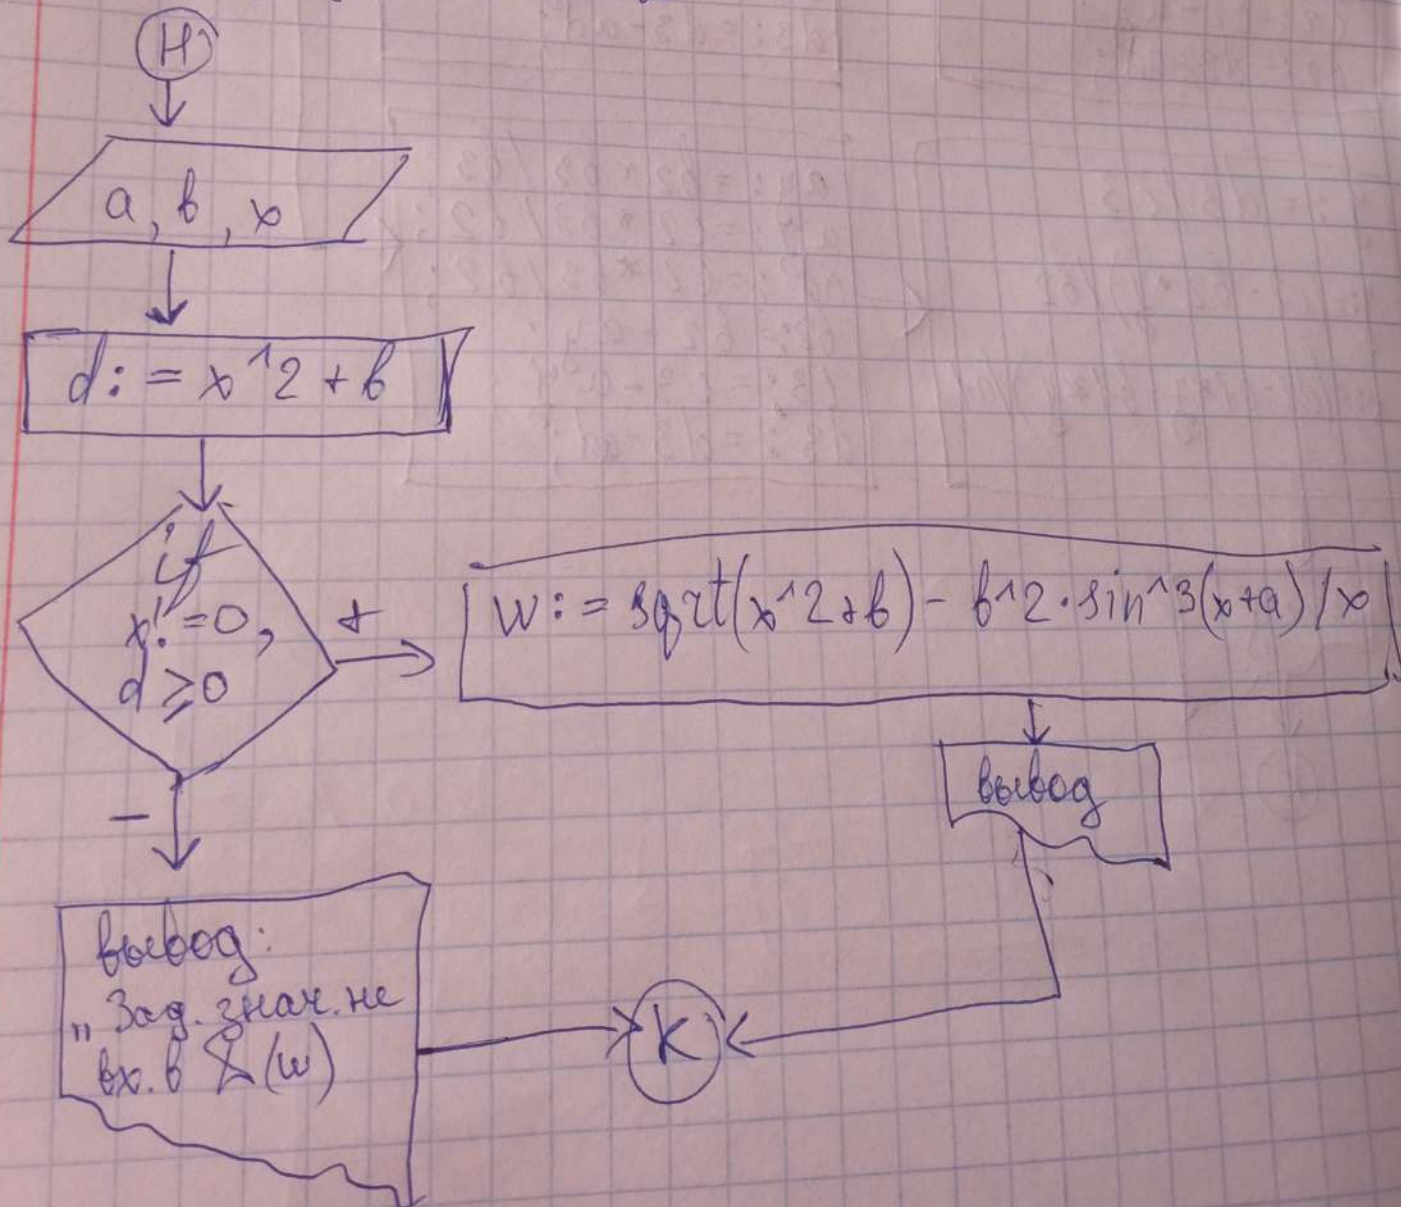 Н
a, b, x
d: = x^2 + b
if
x! =0,
d ⩾0
+
w: = sqrt(x^2+b) - b^2·sin^3(x+a)/x
вывод
−
вывод:
„Зад. знач. не
вх. в (w)
К